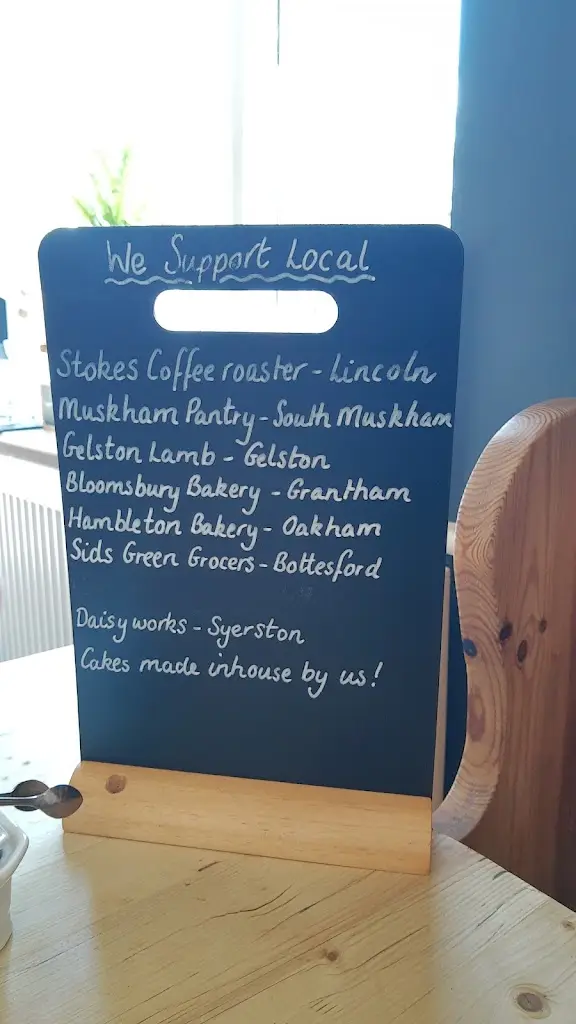 We Support Local
Stokes Coffee roaster - Lincoln
Muskham Pantry - South Muskham
Gelston Lamb - Gelston
Bloomsbury Bakery - Grantham
Hambleton Bakery - Oakham
Sids Green Grocers - Bottesford
Daisy works - Syerston
Cakes made inhouse by us!